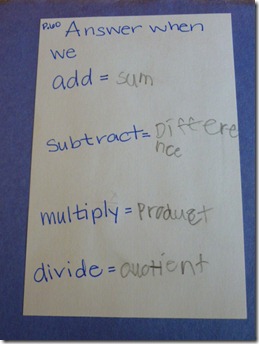 P.60 Answer when
we
add = sum
subtract = Differe
nce
multiply = Product
divide = Quotient